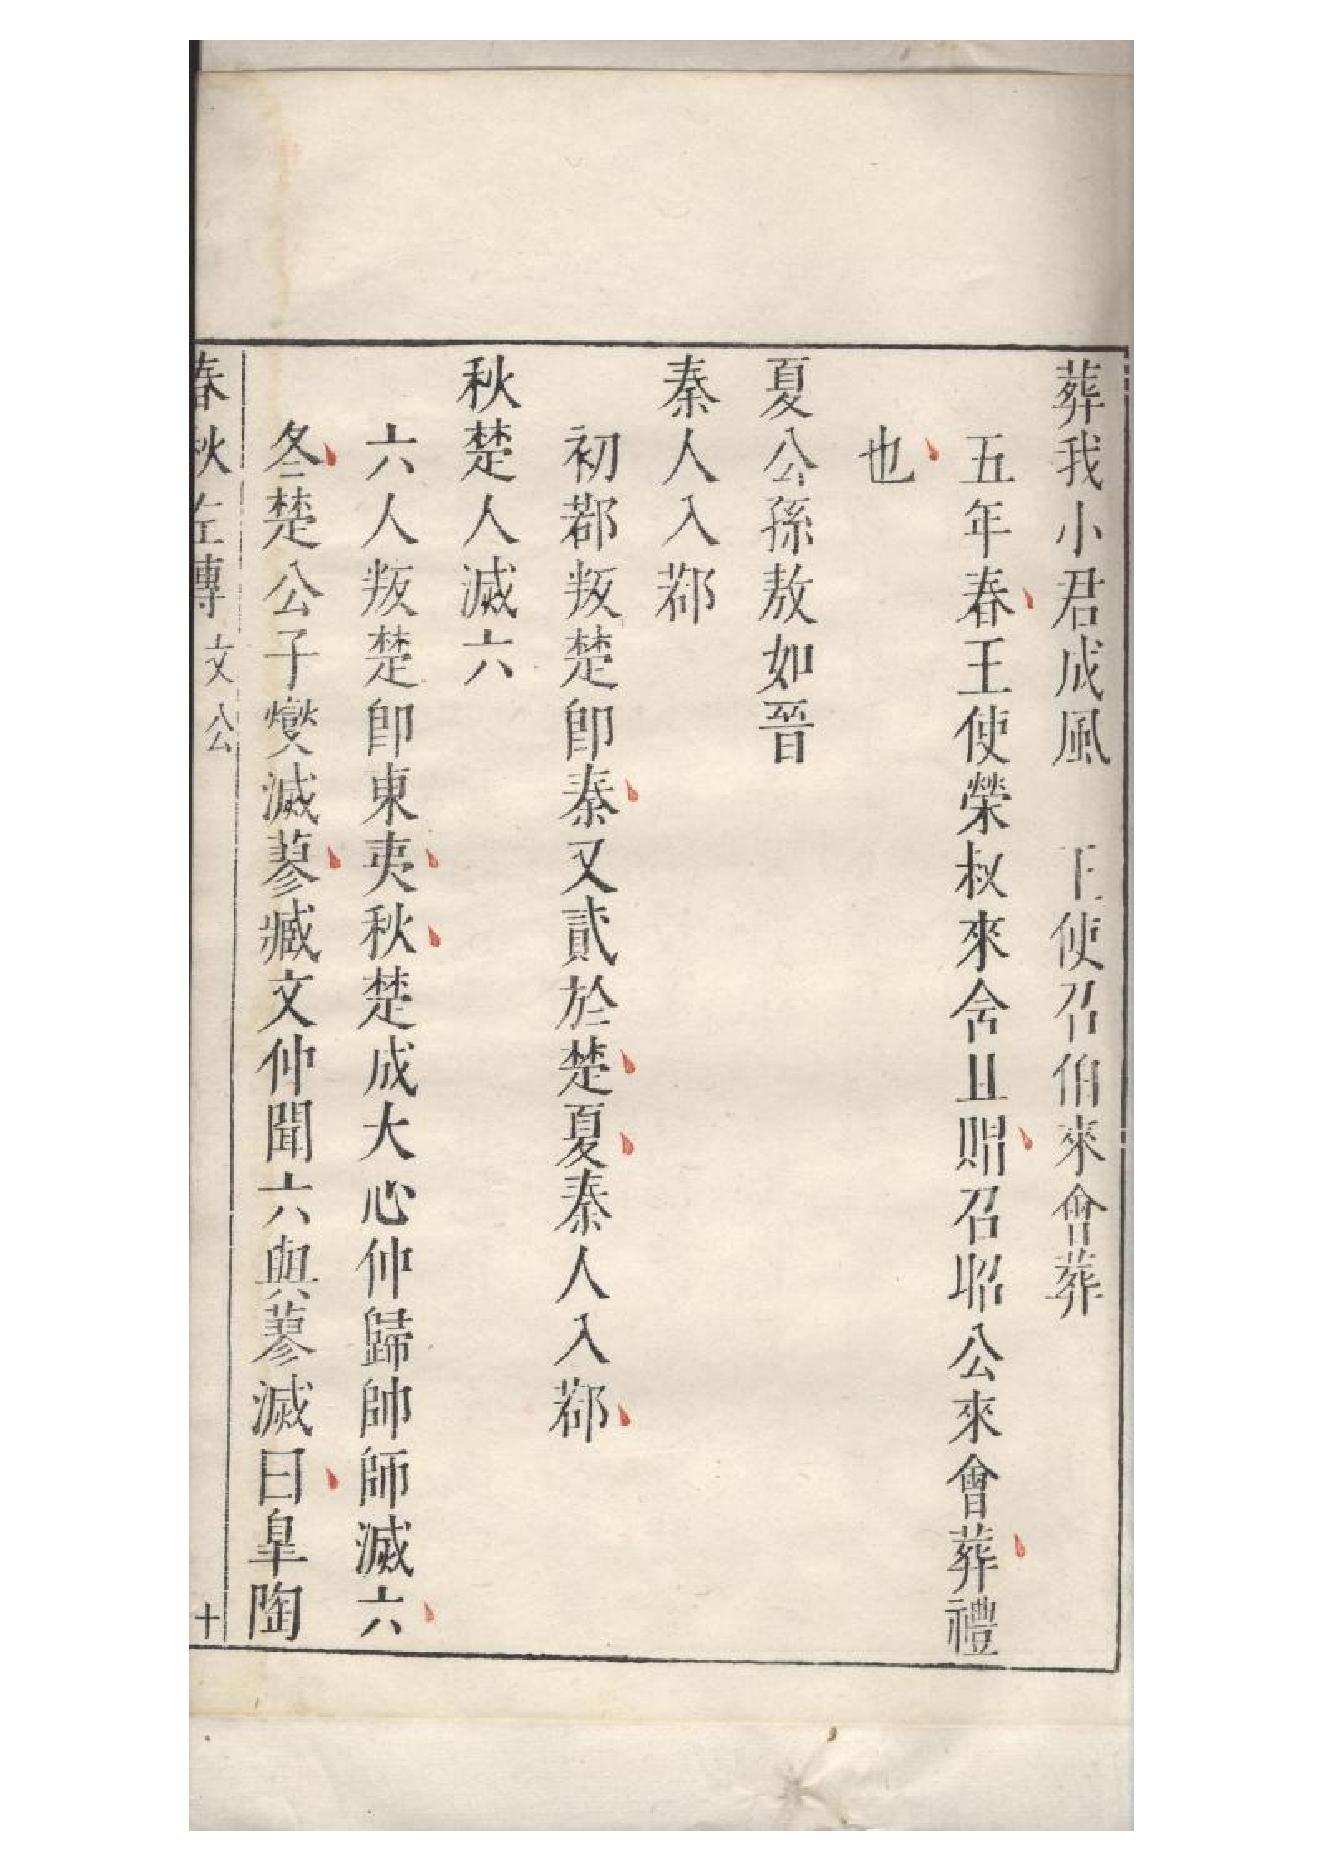 葬我小君成風　王使召伯來會葬
五年春王使榮叔來含且賵召昭公來會葬禮
也
夏公孫敖如晉
秦人入鄀
初鄀叛楚卽秦又貳於楚夏秦人入鄀
秋楚人滅六
六人叛楚卽東夷秋楚成大心仲歸帥師滅六
冬楚公子燮滅蓼臧文仲聞六與蓼滅曰皐陶
春秋左傳 文公 十